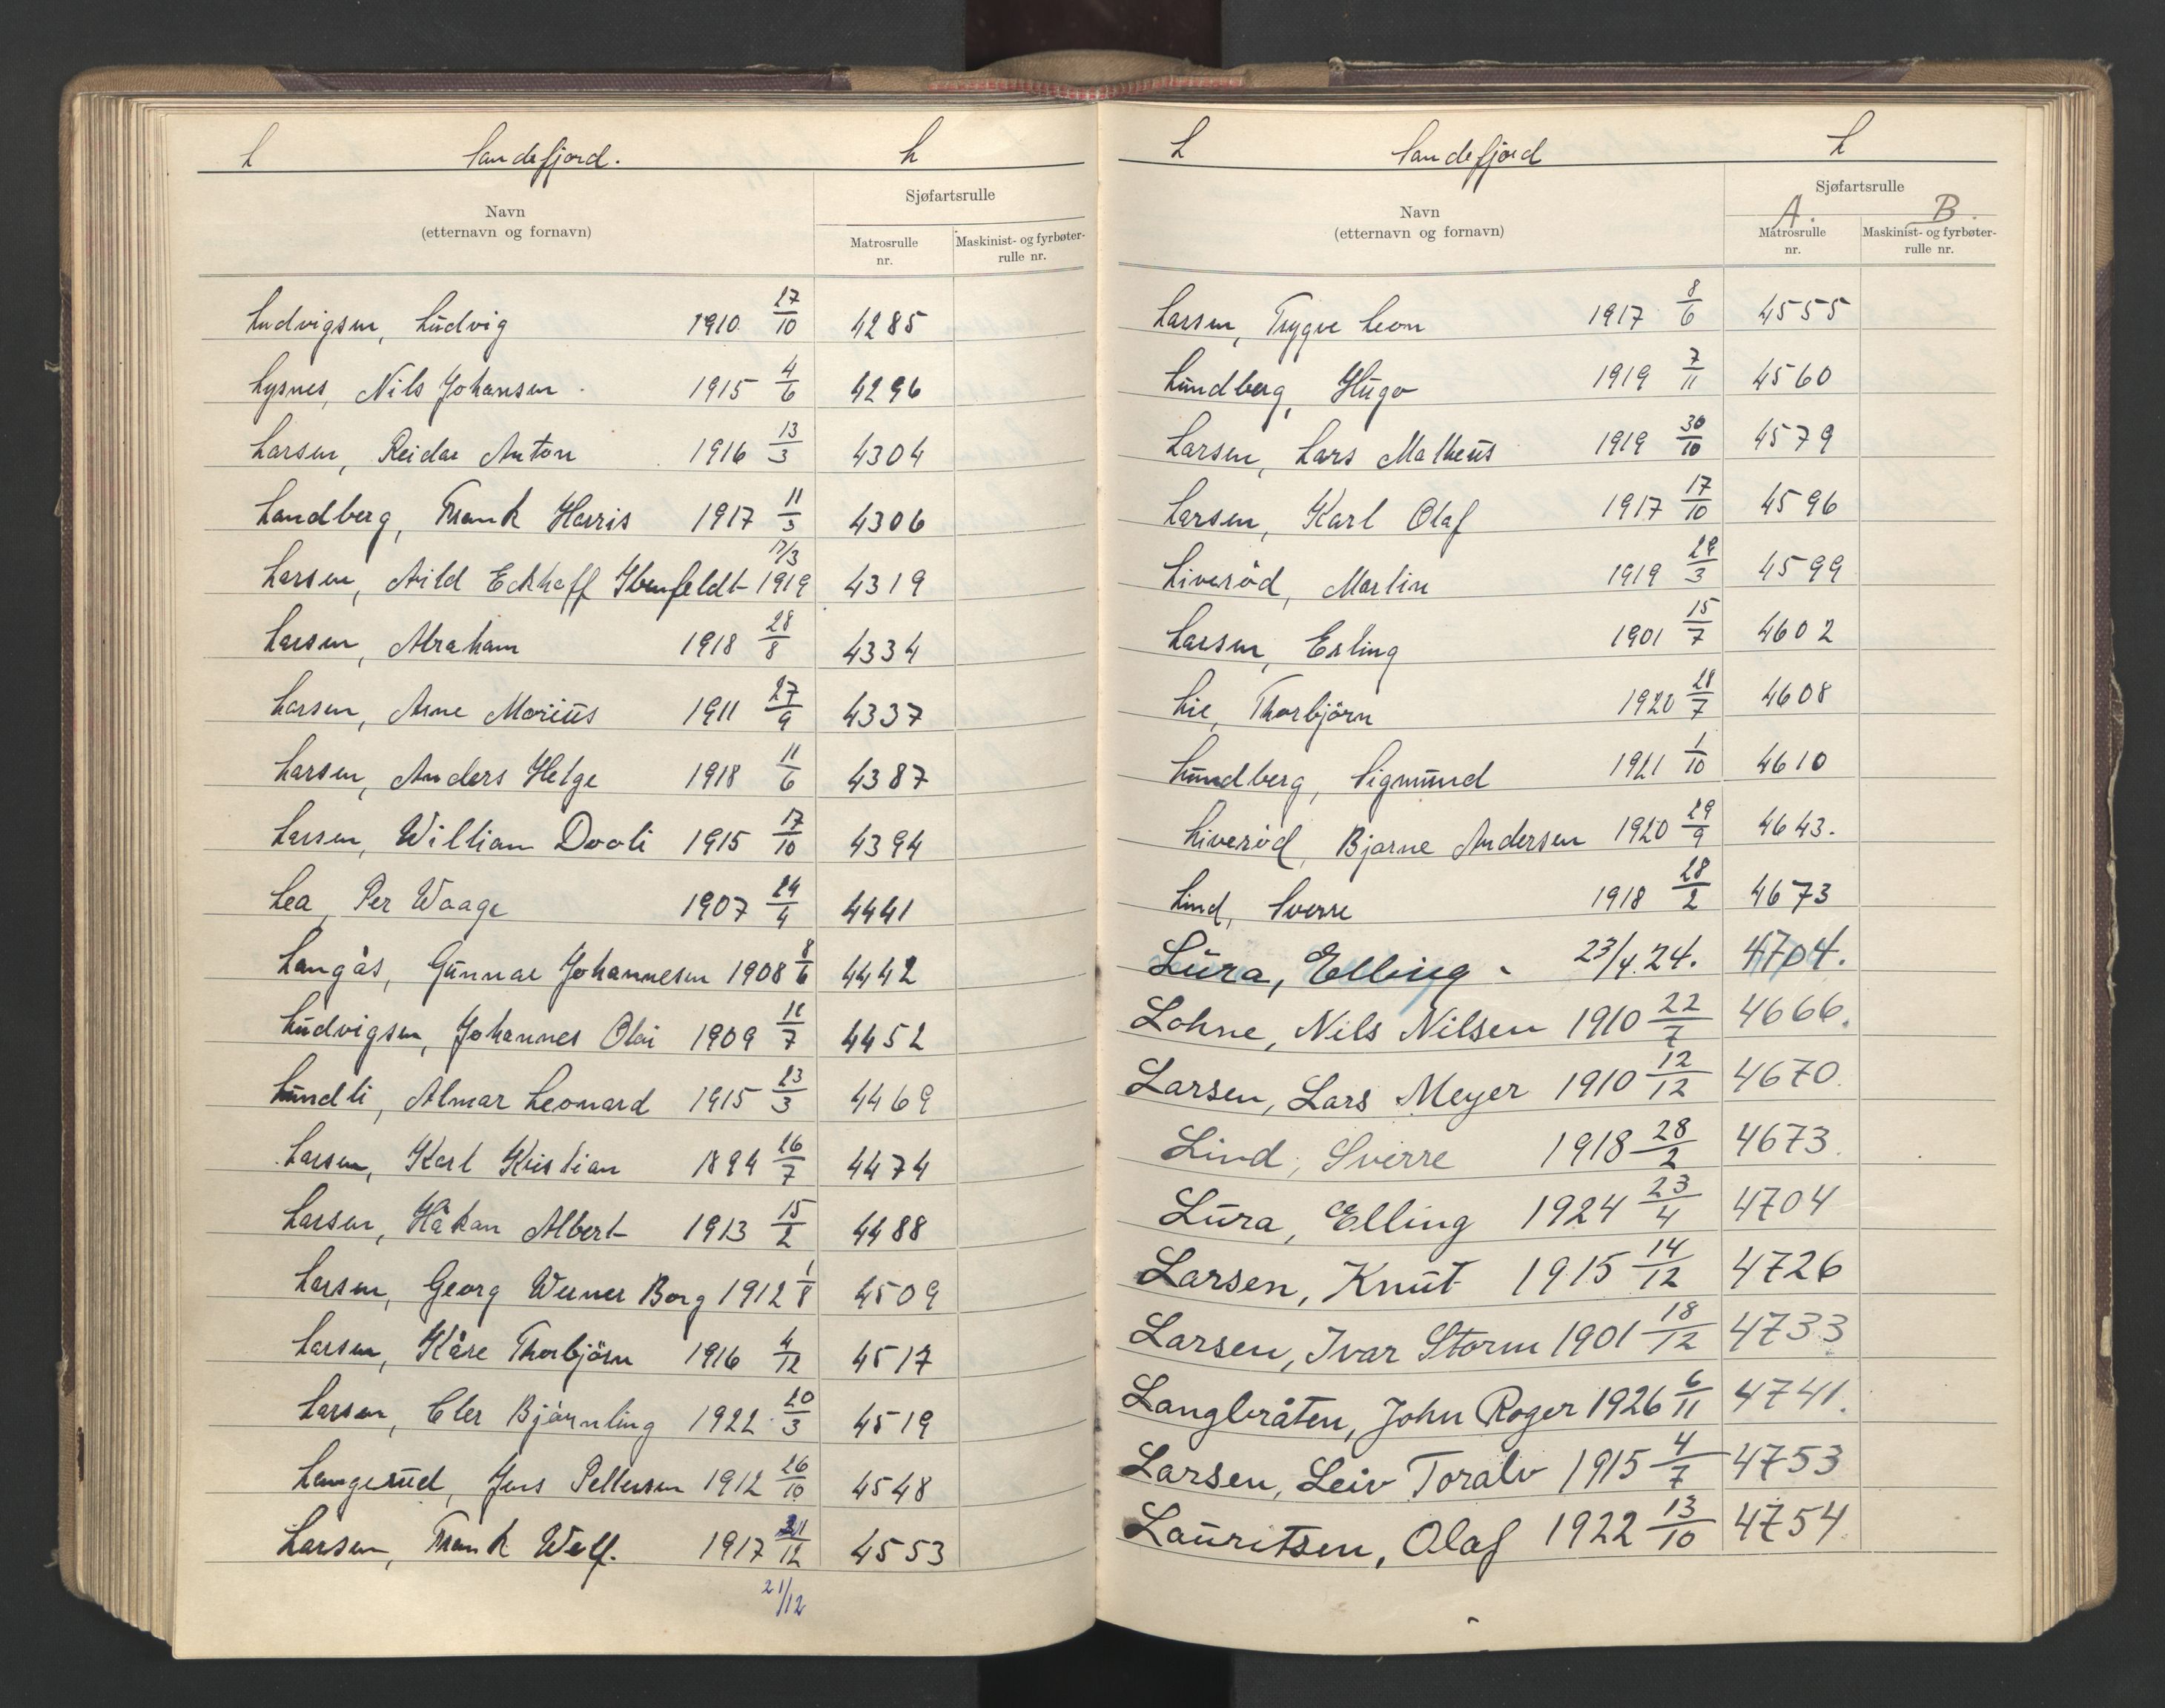 L Sandefjord. L
Sjøfartsrulle
Navn
(etternavn og fornavn)
Matrosrulle nr.
Maskinist- og fyrbøter-rulle nr.
Ludvigsen, Ludvig 1910 27/10 4285
Lysnes, Nils Johansen 1915 4/6 4296
Larsen, Reidar Anton 1916 13/3 4304
Landberg, Frank Harris 1917 11/3 4306
Larsen, Arild Eckhoff 17/3 1919 4319
Larsen, Abraham 1918 28/8 4334
Larsen, Arne Marius 1911 27/9 4337
Larsen, Anders Helge 1918 11/6 4387
Larsen, William Dooli 1915 17/10 4394
Lea, Per Waage 1907 24/4 4441
Langås, Gunnar Johannesen 1908 8/6 4442
Ludvigsen, Johannes Olai 1909 11/7 4452
Lundli, Almar Leonard 1915 23/3 4469
Larsen, Karl Kristian 1894 26/7 4474
Larsen, Håkan Albert 1913 15/2 4488
Larsen, Georg Werner Borg 1912 1/8 4509
Larsen, Kåre Thorbjörn 1916 4/12 4517
Larsen, Bjärnling 1922 20/3 4519
Langerud, Jens Pettersen 1912 26/10 4548
Larsen, Frank Welf. 1917 21/12 4553
21/12
L Sandefjord L
Sjøfartsrulle
Navn
(etternavn og fornavn)
A. B.
Matrosrulle nr.
Maskinist- og fyrbøter-rulle nr.
Larsen, Trygve Leon 1917 8/6 4555
Lundberg, Hugo 1919 7/11 4560
Larsen, Lars Matheus 1919 30/10 4579
Larsen, Karl Olaf 1917 17/10 4596
Liveröd, Martin 1919 29/3 4599
Larsen, Erling 1901 15/7 4602
Lie, Thorbjörn 1920 28/7 4608
Lundberg, Sigmund 1921 1/10 4610
Liveröd, Bjarne Andersen 1920 29/9 4643.
Lind, Sverre 1918 28/2 4673
Lura, Elling 23/4.24. 4704.
Lohne, Nils Nilsen 1910 22/7 4666.
Larsen, Lars Meyer 1910 12/12 4670.
Lind, Sverre 1918 28/2 4673.
Lura, Elling 1924 23/4 4704
Larsen, Knut 1915 14/12 4726
Larsen, Ivar Storm 1901 18/12 4733
Langbråten, John Roger 1926 6/11 4741.
Larsen, Leiv Toralv 1915 4/7 4753
Lauritsen, Olaf 1922 13/10 4754